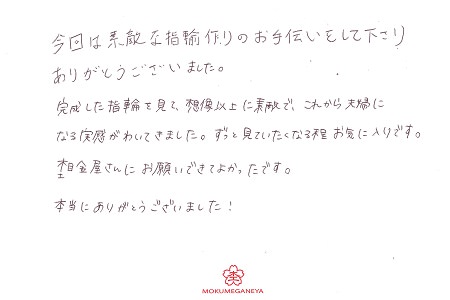 今回は素敵な指輪作りのお手伝いをして下さり
ありがとうございました。
完成した指輪を見て、想像以上に素敵で、これから夫婦に
なる実感がわいてきました。ずっと見ていたくなる程お気に入りです。
杢目金屋さんにお願いできてよかったです。
本当にありがとうございました！
MOKUMEGANEYA